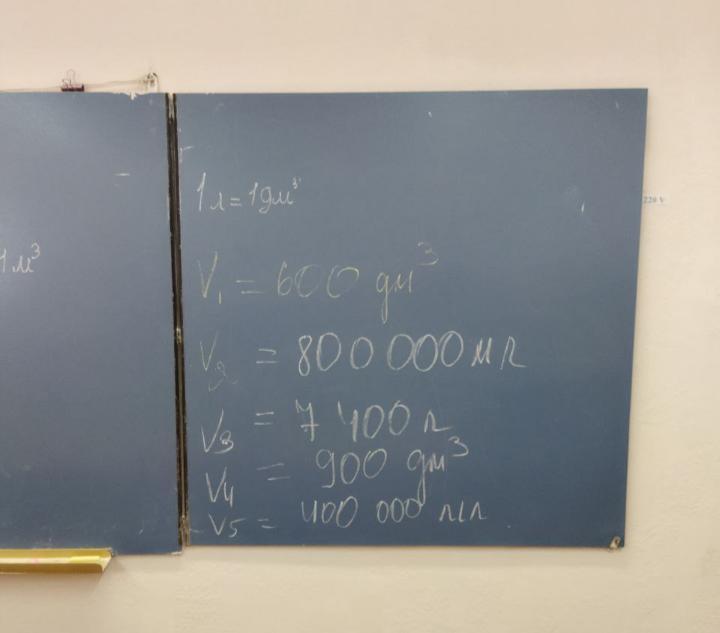 1м³
1л = 1дм³
V₁ = 600 дм³
V₂ = 800 000 мл
V₃ = 7 400 л
V₄ = 900 дм³
V₅ = 400 000 мл
220 V